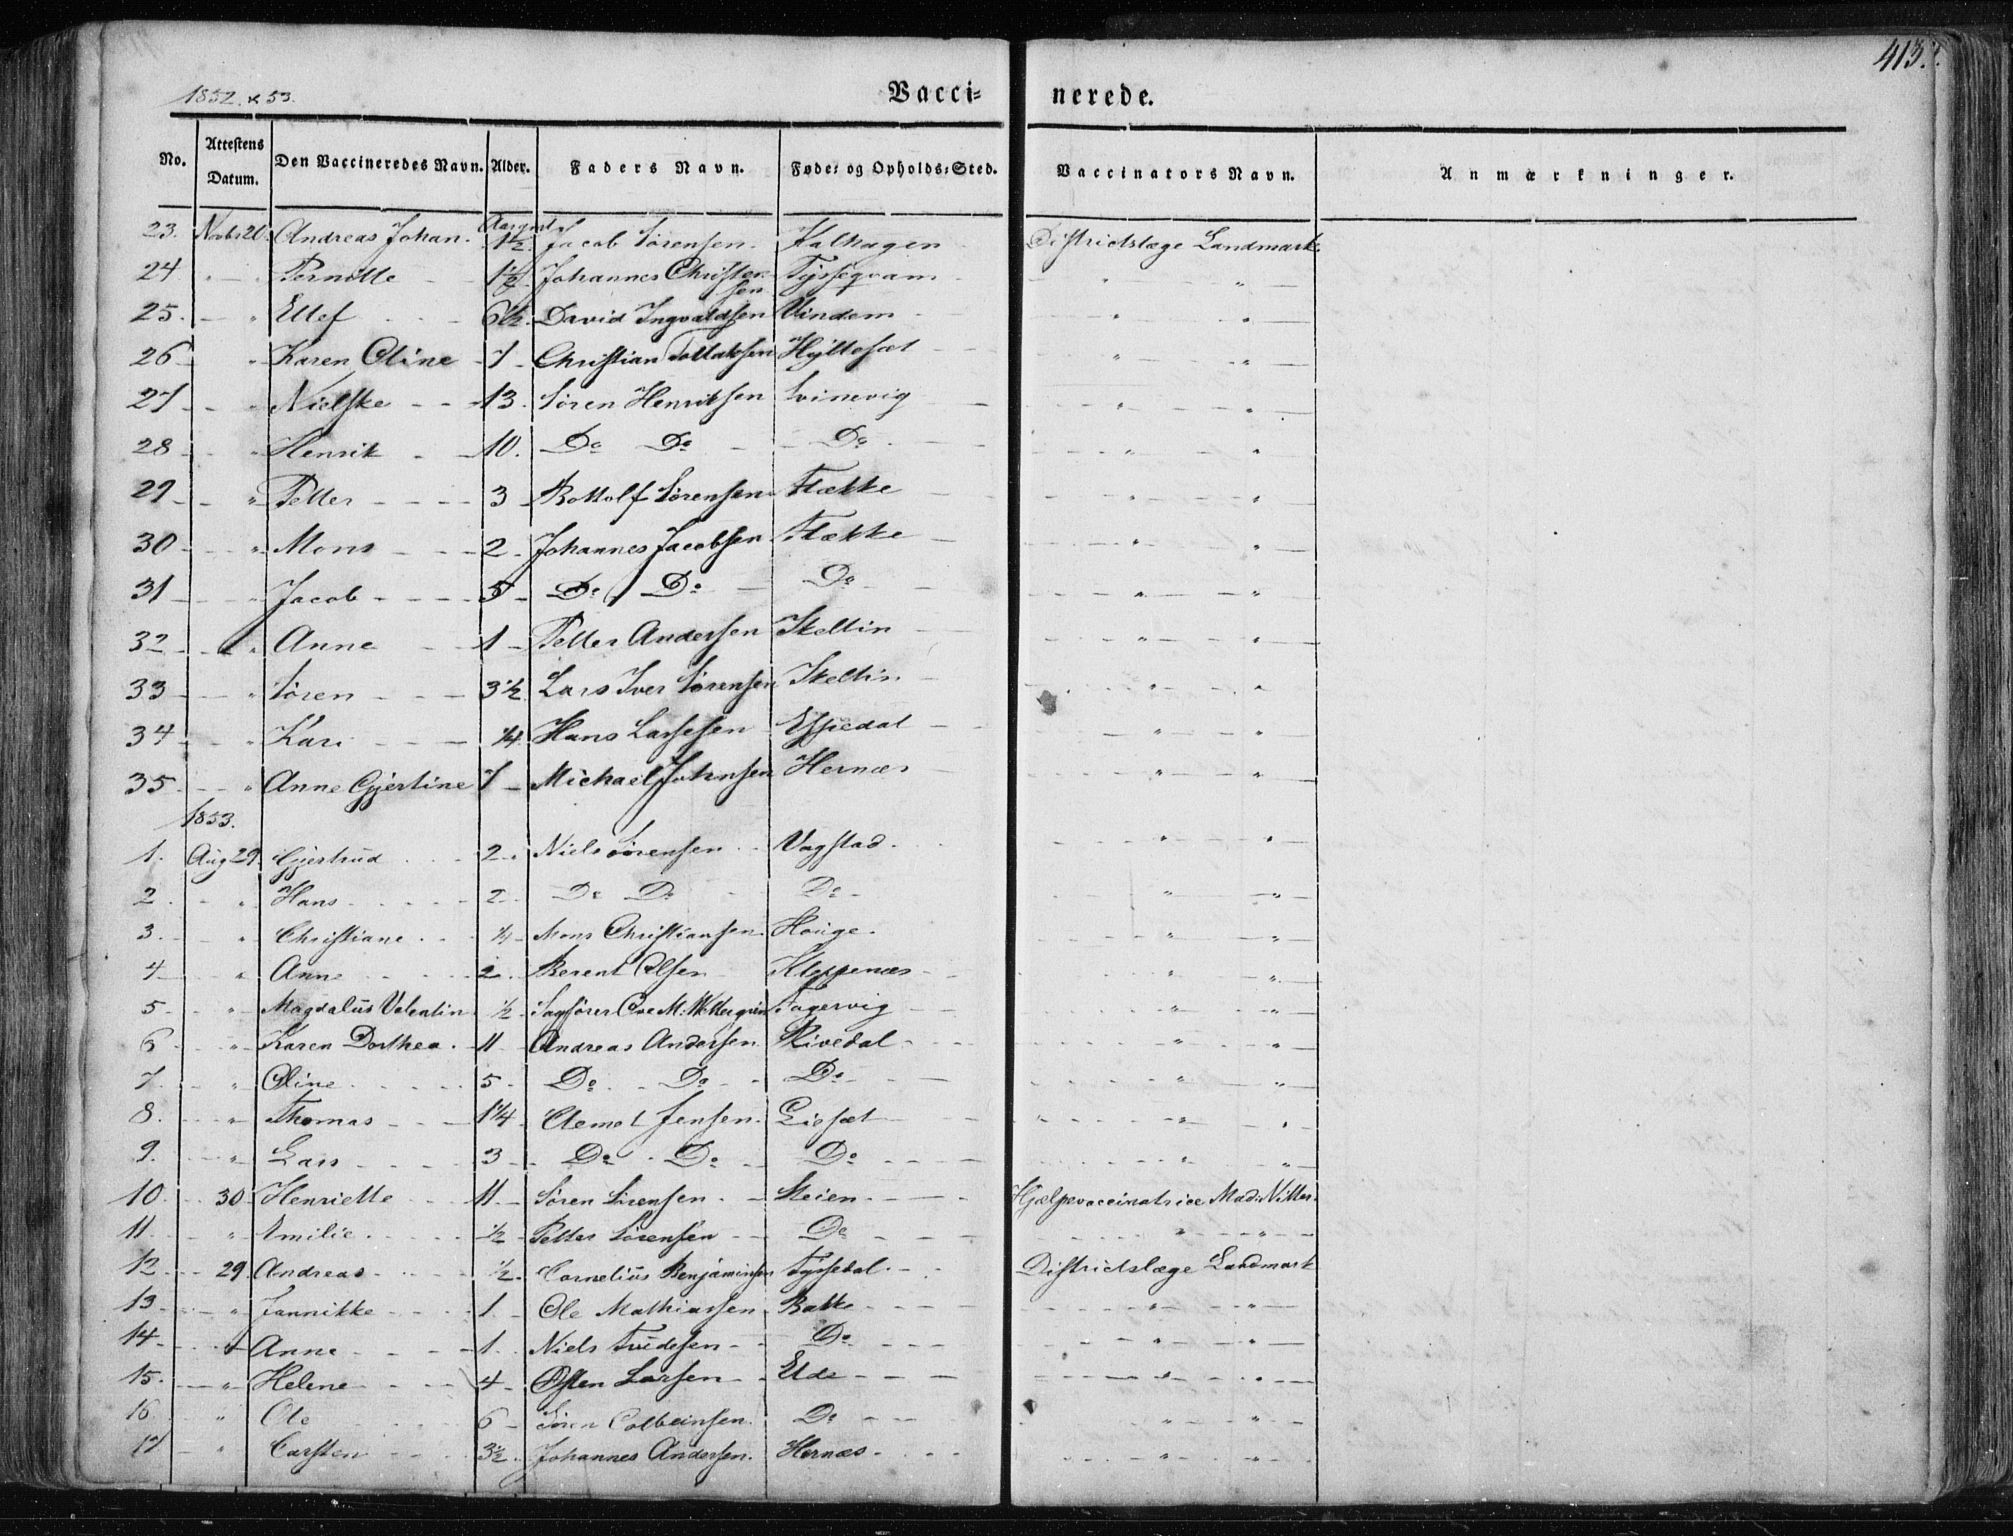 413.
1852. & 53.
Vacci= nerede.
No. Attestens Datum. Den Vaccineredes Navn. Alder. Faders Navn. Føde= og Opholds=Sted. Vaccinators Navn. Anmærkninger.
23. Novbr 20. Andreas Johan. 1½ Jacob Sørensen. Districtslæge Landmark
24 " Pernille 1½ Johannes Christensen Tysseqvam " "
25. " Ellef 6½ David Ingvaldsen Vindem " "
26 " Karen Oline 7 Christian Hyllesæt " "
27 " Nielske 13. Søren Henriksen Svinevig " "
28 " Henrik 10. Do Do Do " "
29 " Petter 3 Rottolf Sørensen Flække " "
30 " Mons 2 Johannes Jacobsen Flække " "
31 " Jacob 5 Do Do Do " "
32 " Anne 1 Petter Andersen Skellin " "
33 " Søren 3½ Lars Iver Sørensen Skellin " "
34 " Kari ¼ Hans Larsesen Espedal " "
35. " Anne Gjertine 7 Michael Johnsen Hernæs " "
1853.
1. Aug 29. Gjertrud 2 Niels Sørensen Vagstad. " "
2 " Hans 2 Do Do Do " "
3. " Christiane ¼ Mons Christiansen Houge. " "
4 " Anne 2 Berent Olsen Kleppenæs " "
5 " Magdalus Valentin ½ Sagfører Ove M. Fagervig " "
6 " Karen Dorthea 11 Andreas Andersen Rivedal " "
7. " Oline 5 Do Do Do " "
8. " Thomas 1¼ Aamot Jensen. Liesæt " "
9. " Lars 3 Do Do Do " "
10. 30 Henriette 11 Søren Sørensen Steien Hjælpevaccinatrice Mad:
11. " Emilie ½ Petter Sørensen Do " "
12 29. Andreas ½ Cornelius Benjaminsen Tyssedal. Districtslæge Landmark
13 " Jannikke 1. Ole Mathiassen Bakke " "
14 " Anne 1. Niels Do " "
15. " Helene 4 Østen Larsen Ude " "
16 " Ole 6 Søren Colbeinsen. Do " "
17 " Carsten 3½ Johannes Andersen. Hernæs " "